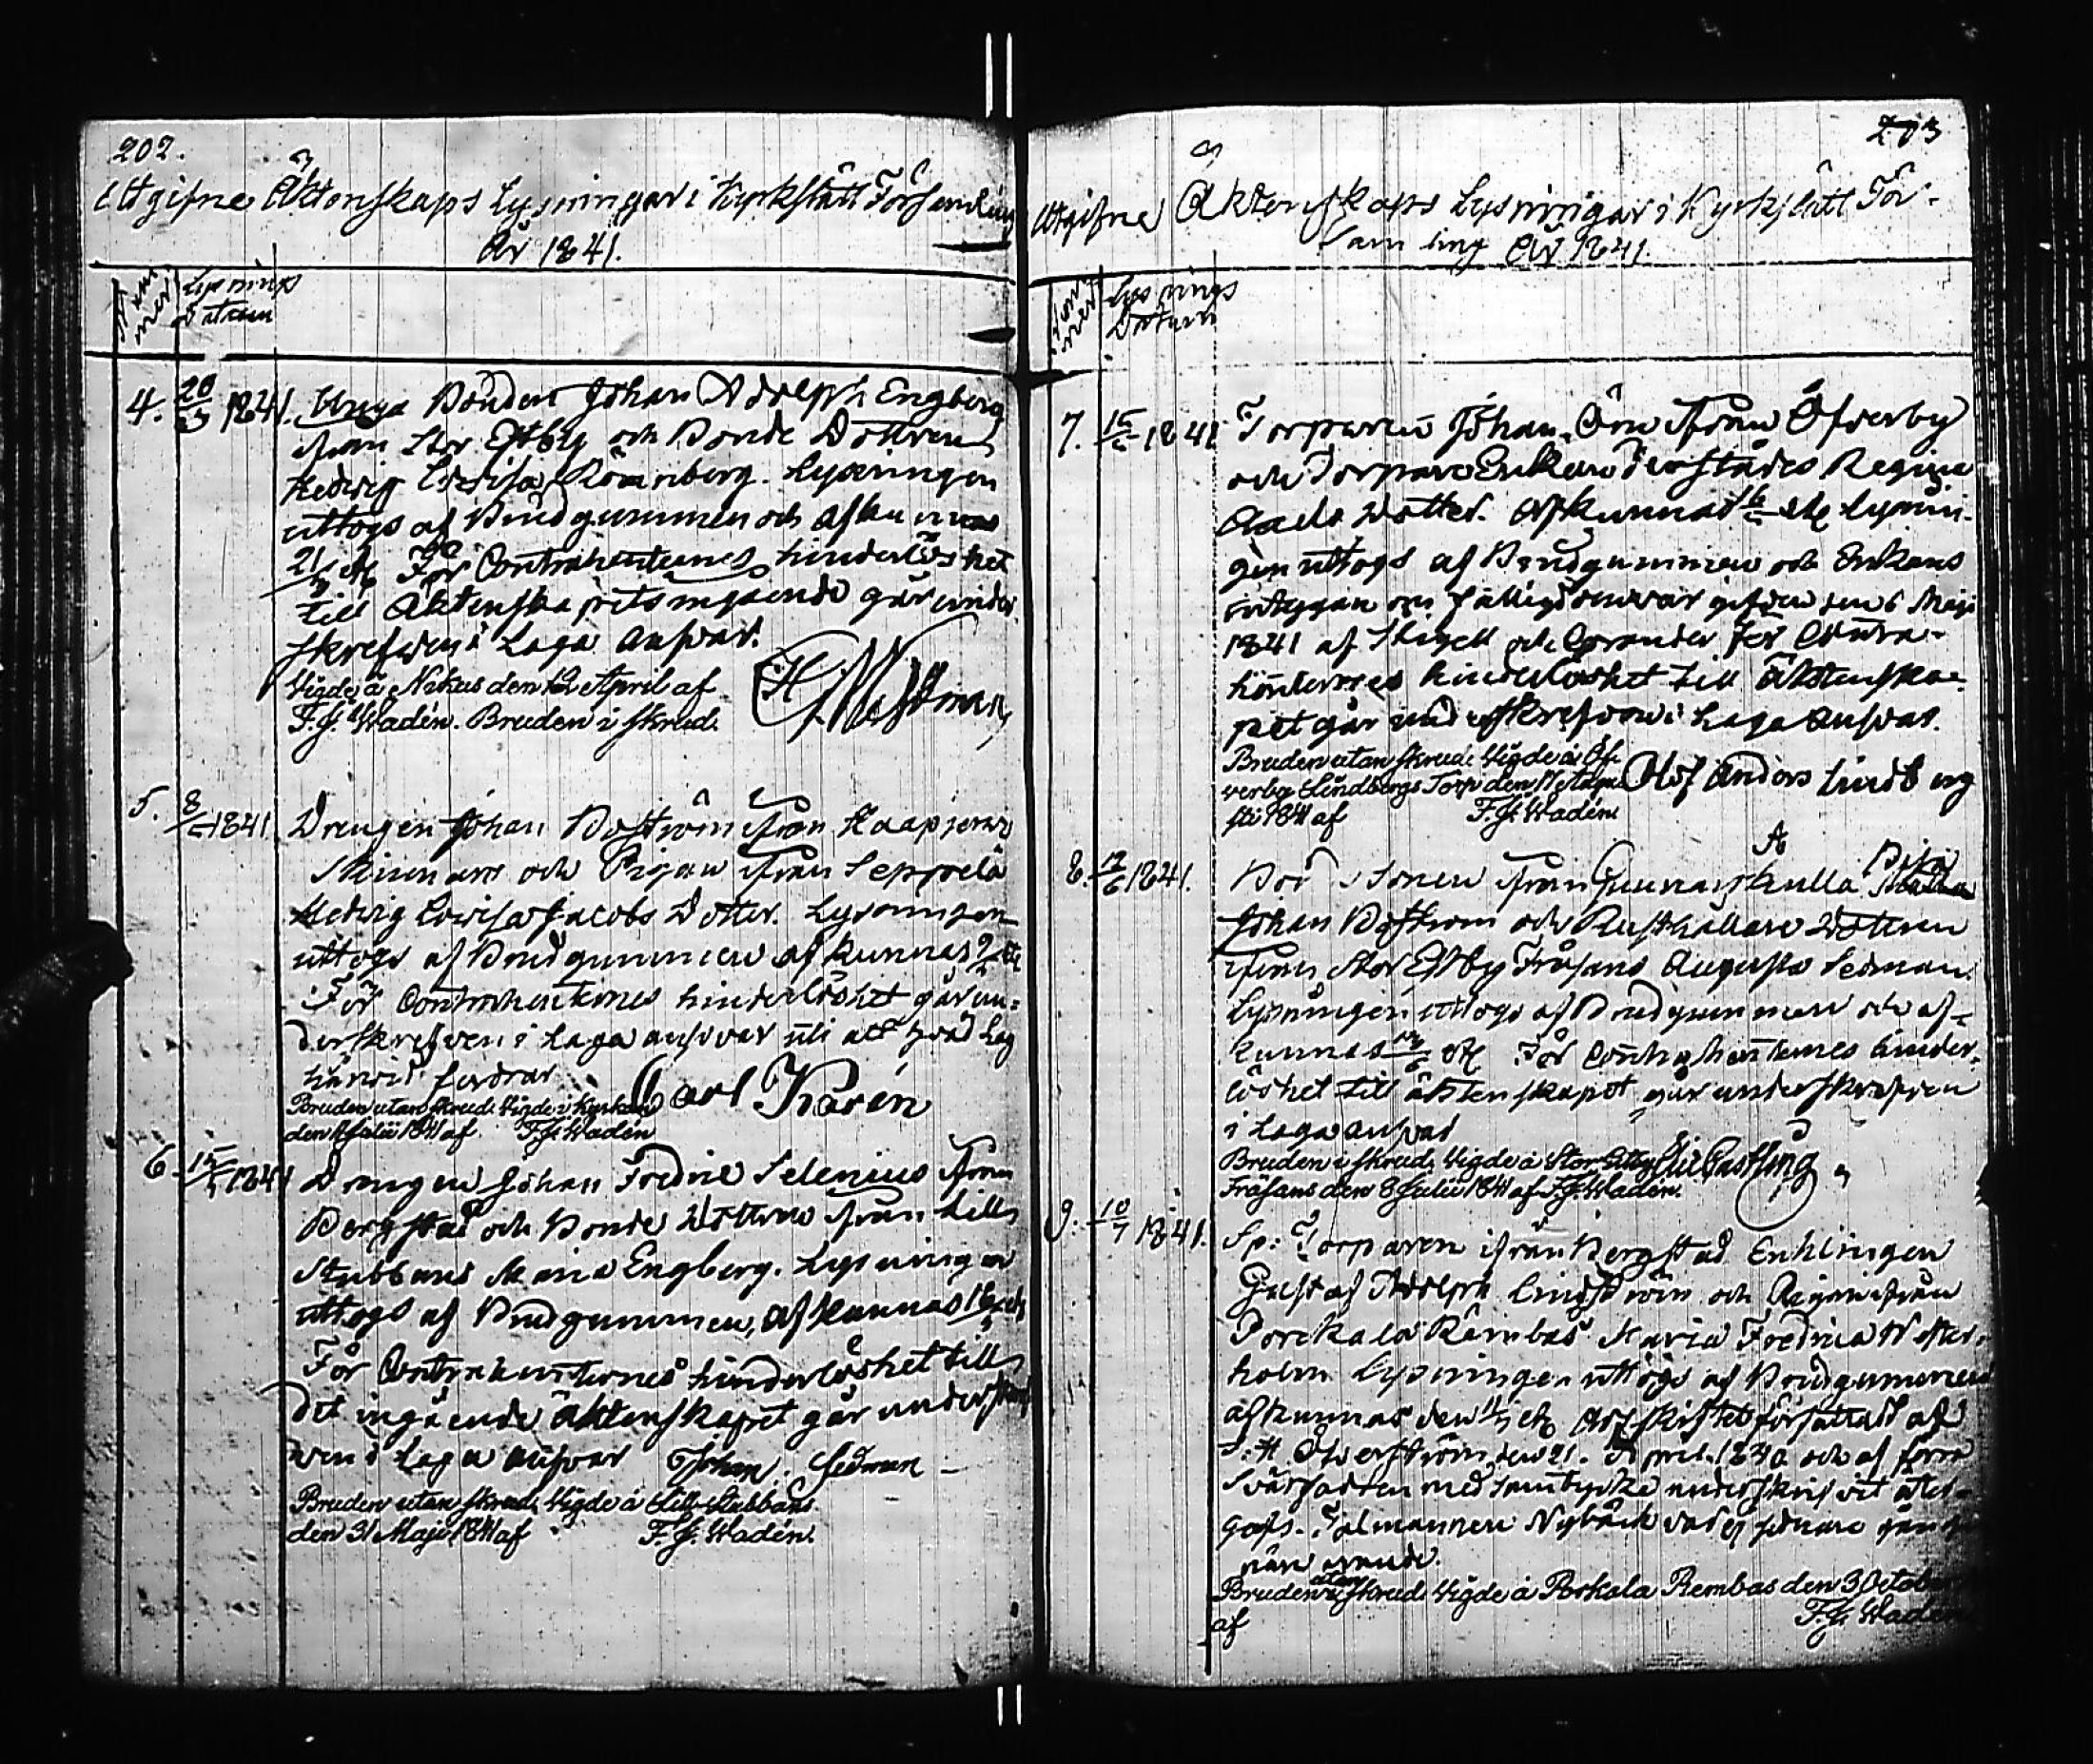 202.
Utgifne Äktenskaps Lysningar i Kyrkslätt Församling
År 1841.
Num
mer
Lysnings
Datum
4. 20/3 1841. Unga Bonden Johan Adolph Engberg
ifrån Stor Estby och Bonde Dottren
Hedvig Lovisa Rönnberg. Lysningen
uttogs af Brudgummen och afkunnas
21/3 etc För Contrahenternes hinderlöshet
till Äktenskapets ingående går under
skrefven i Laga answar.
Vigde å Nikus den 12 April af
F. J. Wadén. Bruden i skrud.
5. 8/5 1841. Drengen Johan Boström ifrån Kaapjerwi
och Pigan ifrån Seppelä
Hedvig Lovisa Jacobs Dotter. Lysningen
uttogs af Brudgummen afkunnas 9/5 etc
För Contrahenternes hinderlöshet går un-
derskrefven i Laga answar uti alt hvad Lag
härvid fordrar
Carl Karén
Bruden utan skrud. Vigde i Kyrkan
den Julii 1841 af F. J. Wadén
6. 15/5 1841 Drengen Johan Fredric Selenius ifrån
Bergstad och Bonde Dottren ifrån Lill
Stubbans Maria Engberg. Lysningen
uttogs af Brudgummen, afkunnas 16/5 etc
För Contrahenternes hinderlöshet till
det ingående äktenskapet går underskref
ven i Laga answar Johan Sedman
Bruden utan skrud. Vigde å Lill Stubbans
den 31 Maji 1841 af F. J. Wadén.
203
Utgifne Äktenskaps Lysningar i Kyrkslätt För-
samling År 1841.
Num
mer
Lysnings
Datum
7. 15/5 1841 Torparen Johan ifrån Öfverby
och Torpare Enkan derstädes Regina
Dotter. Afkunnas 16/5 etc Lysnin-
gen uttogs af Brudgummen och Enkans
intygan om gifven den 6 Maji
1841 af och För Contra-
henternes hinderlöshet till Äktenska-
pet går underskrefven i Laga answar.
Bruden utan skrud. Vigde å Öf-
verby Lindbergs Torp den Augu
sti 1841 af F. J. Wadén.
Olof Anders Lindberg
8. 12/6 1841. ifrån Gunnarskulla
Johan Boström och Rusthållare Dottren
ifrån Stor Estby Fråsans Augusta Sedman.
Lysningen uttogs af Brudgummen och af-
kunnas 13/6 etc För Contrahenternes hinder-
löshet till äktenskapet går underskrefven
i Laga answar
Bruden i skrud. Vigde å Stor Estby
Fråsans den 8 Julii 1841 af F. J. Wadén.
9. 10/7 1841. Sp: Torparen ifrån Bergstad Enklingen
Gustaf Adolph Lindström och Pigan ifrån
Porckala Rämbas Maria Fredrica Wester-
holm Lysningen uttogs af Brudgummen
afkunnas den 11/7 etc författad af
den 21. April 1840 och af förra
Svärfadren med samtycke underskrifvit åter-
gafs. Tolmannen Nybäck
närvarande.
Bruden utan skrud. Vigde å Porkala Rembas den 3 October
af F. J. Wadén